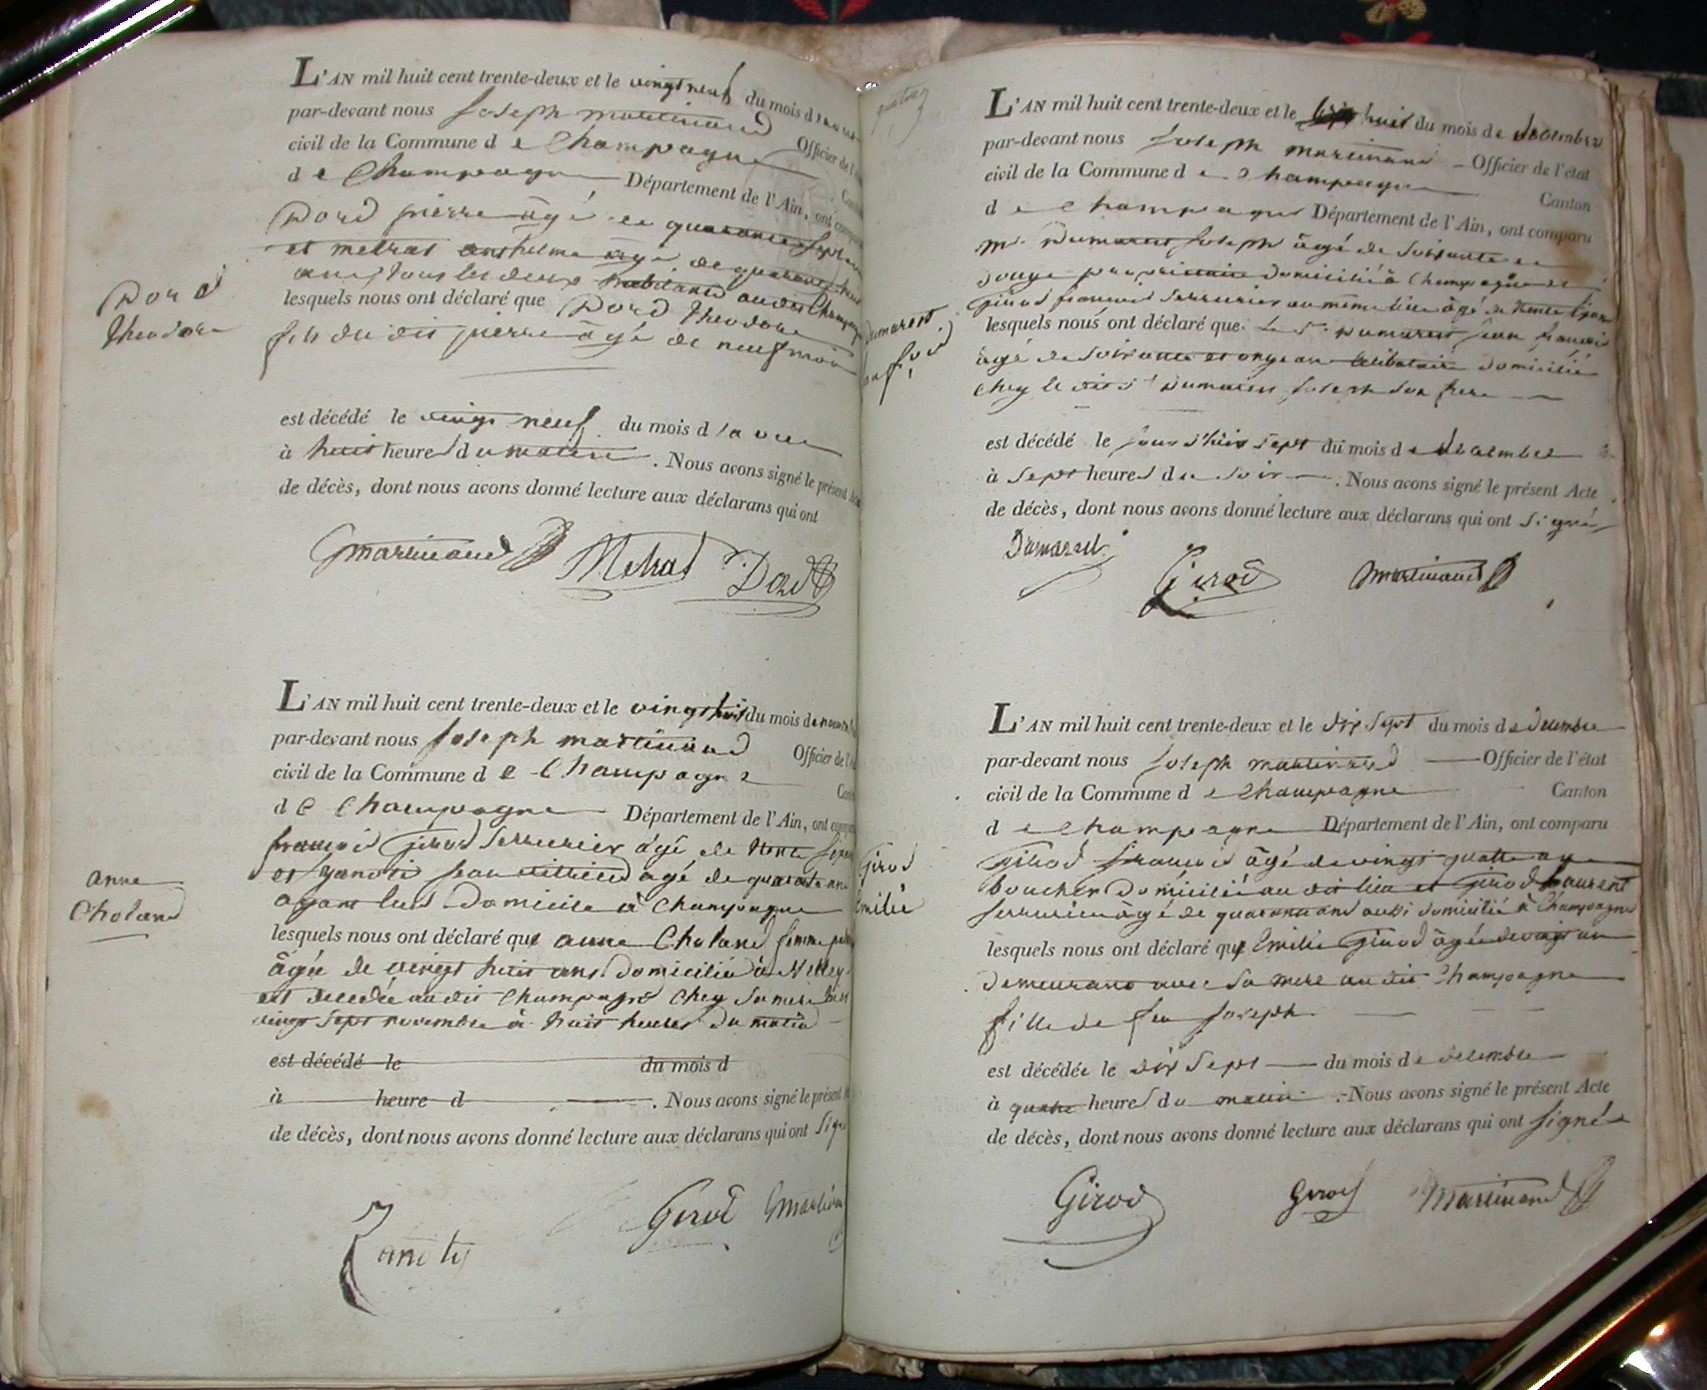 L'AN mil huit cent trente-deux et le vingt neuf du mois d
par-devant nous Joseph martinand Officier de l'
civil de la Commune de Champagne
de Champagne Département de l'Ain, ont
Dord pierre âgé de quarante sept
et metrat anthelme âgé de quarante huit
ans tous les deux habitans au dit Champagne
lesquels nous ont déclaré que Dord Theodore
fils du dit pierre âgé de neuf mois
Dord
Theodore
est décédé le vingt neuf du mois d
à huit heures du matin. Nous avons signé le présent
de décès, dont nous avons donné lecture aux déclarans qui ont
martinand Metrat Dord
L'AN mil huit cent trente-deux et le vingt huit du mois de
par-devant nous Joseph martinand Officier de l'
civil de la Commune de Champagne
de Champagne Département de l'Ain, ont
françois Girod Serrurier âgé de trente
et Jean âgé de quarante ans
ayant leur Domicile à Champagne
lesquels nous ont déclaré que anne Choland femme
âgée de vingt huit ans Domiciliée à
est decedée au dit Champagne chez sa mere
vingt sept novembre à huit heures du matin
anne
Choland
est décédé le du mois d
à heure d . Nous avons signé le présent
de décès, dont nous avons donné lecture aux déclarans qui ont
Girod
L'AN mil huit cent trente-deux et le huit du mois de decembre
par-devant nous Joseph martinand Officier de l'état
civil de la Commune de Champagne Canton
de Champagne Département de l'Ain, ont comparu
mr Dumarest Joseph âgé de soixante et
douze proprietaire domicilié à Champagne et
Girod françois Serrurier au même lieu âgé de trente
lesquels nous ont déclaré que le Sr Dumarest jean françois
âgé de soixante et onze ans celibataire domicilié
chez le dit Sr Dumarest Joseph son frere
est décédé le jour d'hier sept du mois de decembre
à sept heures du soir . Nous avons signé le présent Acte
de décès, dont nous avons donné lecture aux déclarans qui ont signé
Dumarest Girod martinand
L'AN mil huit cent trente-deux et le dix sept du mois de decembre
par-devant nous Joseph martinand Officier de l'état
civil de la Commune de Champagne Canton
de Champagne Département de l'Ain, ont comparu
Girod françois âgé de vingt quatre ans
boucher Domicilié au dit lieu et Girod Laurent
serrurier âgé de quarante ans aussi domicilié à Champagne
lesquels nous ont déclaré que Emilie Girod âgée de vingt un
Demeurant avec sa mere au dit Champagne
fille de feu Joseph
Girod
Emilie
est décédée le dix sept du mois de decembre
à quatre heures du matin . Nous avons signé le présent Acte
de décès, dont nous avons donné lecture aux déclarans qui ont signé
Girod Girod Martinand